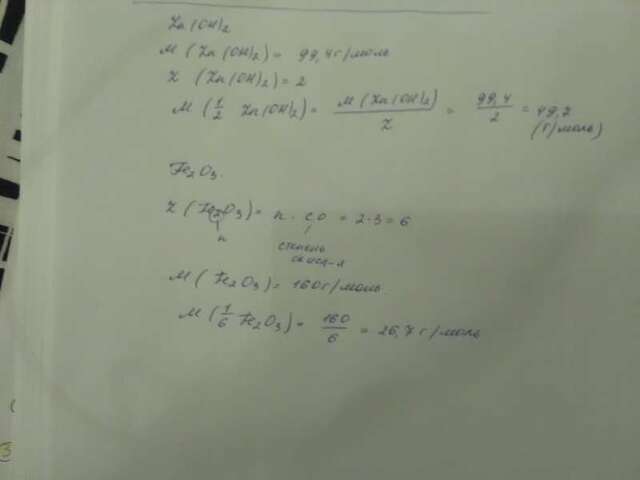 Zn(OH)2
M (Zn(OH)2) = 99,4 г/моль
Z (Zn(OH)2) = 2
M (1/2 Zn(OH)2) = M(Zn(OH)2)/Z = 99,4/2 = 49,7
(г/моль)
Fe2O3.
Z (Fe2O3) = n · с.о = 2·3 = 6
n
степень
окисл-я
M (Fe2O3) = 160 г/моль
M (1/6 Fe2O3) = 160/6 = 26,7 г/моль
3